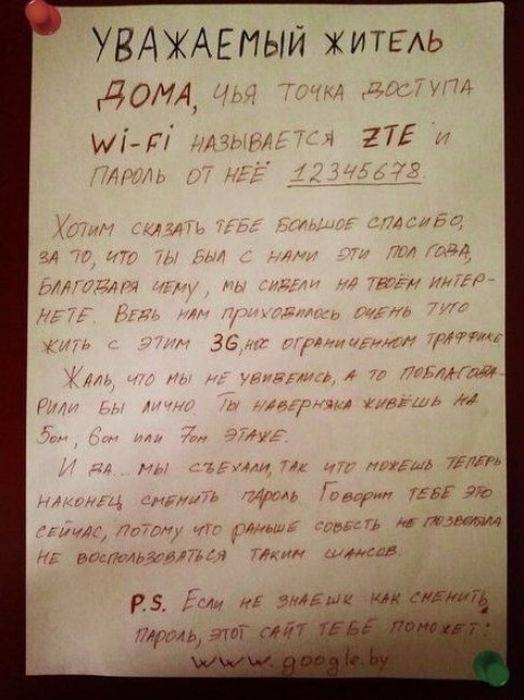 УВАЖАЕМЫЙ ЖИТЕЛЬ
ДОМА, ЧЬЯ ТОЧКА ДОСТУПА
Wi-Fi НАЗЫВАЕТСЯ ZTE И
ПАРОЛЬ ОТ НЕЁ 12345678.
ХОТИМ СКАЗАТЬ ТЕБЕ БОЛЬШОЕ СПАСИБО,
ЗА ТО, ЧТО ТЫ БЫЛ С НАМИ ЭТИ ПОЛ ГОДА,
БЛАГОДАРЯ ЧЕМУ, МЫ СИДЕЛИ НА ТВОЁМ ИНТЕР-
НЕТЕ. ВЕДЬ НАМ ПРИХОДИЛОСЬ ОЧЕНЬ ТУГО
ЖИТЬ С ЭТИМ 3G, ограниченном ТРАФФИКЕ
ЖАЛЬ, ЧТО МЫ НЕ УВИДЕЛИСЬ, А ТО ПОБЛАГОДА-
РИЛИ БЫ ЛИЧНО. ТЫ НАВЕРНЯКА ЖИВЁШЬ НА
5ом, 6ом или 7ом ЭТАЖЕ.
И ДА... МЫ СЪЕХАЛИ, ТАК ЧТО МОЖЕШЬ ТЕПЕРЬ
НАКОНЕЦ СМЕНИТЬ ПАРОЛЬ ГОВОРИМ ТЕБЕ ЭТО
СЕЙЧАС, ПОТОМУ ЧТО РАНЬШЕ СОВЕСТЬ НЕ ПОЗВОЛЯЛА
НЕ ВОСПОЛЬЗОВАТЬСЯ ТАКИМ ШАНСОВ.
P.S. ЕСЛИ НЕ ЗНАЕШЬ КАК СМЕНИТЬ
ПАРОЛЬ, ЭТОТ САЙТ ТЕБЕ ПОМОЖЕТ:
www.google.by